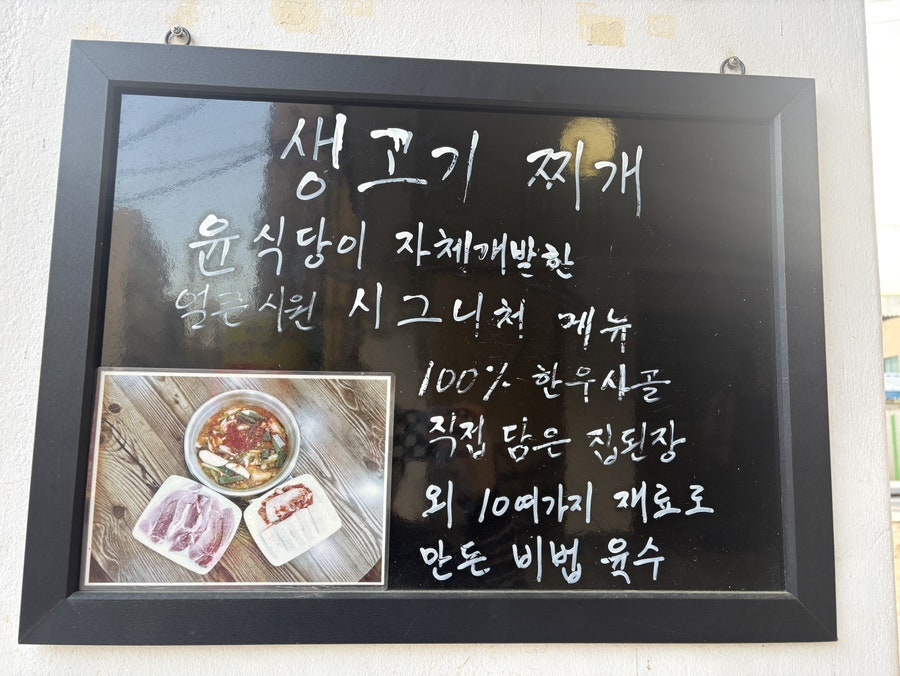 생고기 찌개
윤식당이 자체개발한
얼큰시원 시그니처 메뉴
100% 한우사골
직접 담은 집된장
외 10여가지 재료로
만든 비법 육수